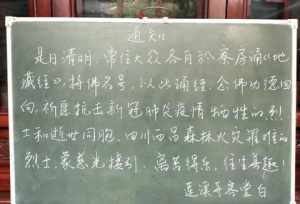 通知
是日清明 常住大众各自於寮房诵《地
藏经》，持佛名号，以此诵经、念佛功德回
向，祈愿抗击新冠肺炎疫情牺牲的烈
士和逝世同胞、四川西昌森林火灾罹难的
烈士，蒙慈光接引，离苦得乐，往生善趣！
莲溪寺客堂白